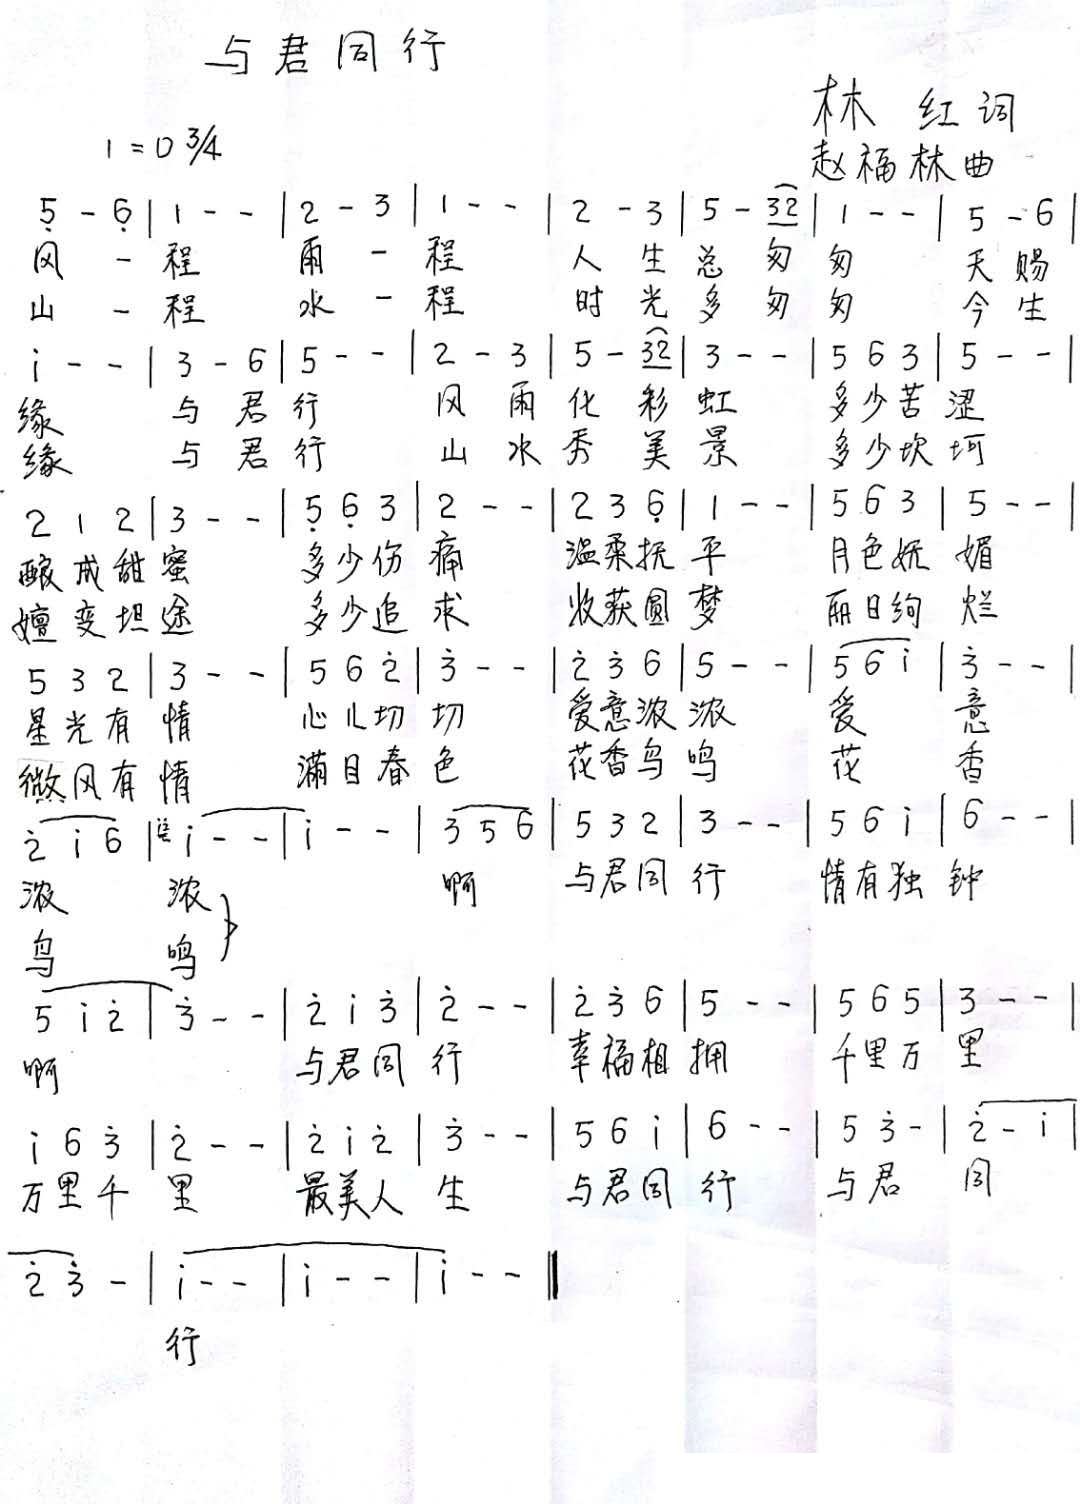 与君同行
林 红 词
1=D 3/4
赵福林曲
5̣ - 6̣ | 1 - - | 2 - 3 | 1 - - | 2 - 3 | 5 - 32 | 1 - - | 5 - 6 |
风 一 程 雨 一 程 人 生 总 匆 匆 天 赐
山 一 程 水 一 程 时 光 多 匆 匆 今 生
i - - | 3 - 6 | 5 - - | 2 - 3 | 5 - 32 | 3 - - | 5 6 3 | 5 - - |
缘 与 君 行 风 雨 化 彩 虹 多少苦 涩
缘 与 君 行 山 水 秀 美 景 多少坎 坷
2 1 2 | 3 - - | 5̣ 6̣ 3 | 2 - - | 2 3 6̣ | 1 - - | 5 6 3 | 5 - - |
酿 成 甜 蜜 多少伤 痛 温柔抚 平 月色妩 媚
嬗 变 坦 途 多少追 求 收获圆 梦 丽日绚 烂
5 3 2 | 3 - - | 5 6 2̇ | 3̇ - - | 2̇ 3̇ 6 | 5 - - | 5 6 i | 3̇ - - |
星 光 有 情 心儿切 切 爱意浓 浓 爱 意
微 风 有 情 满目春 色 花香鸟 鸣 花 香
2̇ i 6 | i - - | i - - | 3 5 6 | 5 3 2 | 3 - - | 5 6 i | 6 - - |
浓 浓 啊 与君同 行 情有独 钟
鸟 鸣
5 i 2̇ | 3̇ - - | 2̇ i 3̇ | 2̇ - - | 2̇ 3̇ 6 | 5 - - | 5 6 5 | 3 - - |
啊 与君同 行 幸福相 拥 千里万 里
i 6 3̇ | 2̇ - - | 2̇ i 2̇ | 3̇ - - | 5 6 i | 6 - - | 5 3̇ - | 2̇ - i |
万里千 里 最美人 生 与君同 行 与君 同
2̇ 3̇ - | i - - | i - - | i - - ‖
行